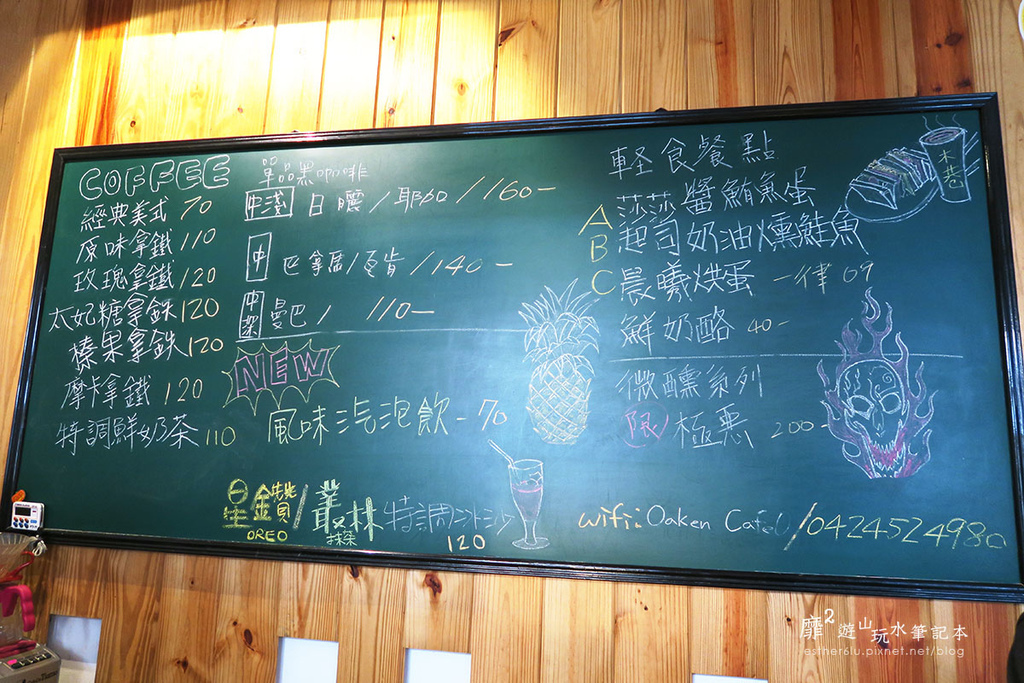 COFFEE
經典美式 70
原味拿鐵 110
玫瑰拿鐵 120
太妃糖拿鉄 120
榛果拿鉄 120
摩卡拿鐵 120
特調鮮奶茶 110
單品黑咖啡
中淺 日曬/耶加/160-
中 巴拿馬/瓦肯/140-
中深 曼巴/ 110-
NEW
風味汽泡飲-70
星鑽/叢林特調冰沙
OREO 抹茶 120
輕食餐點
A 莎莎醬鮪魚蛋
B 起司奶油燻鮭魚
C 晨曦烘蛋 一律69
鮮奶酪 40-
微醺系列
限 極惡 200-
木巷
wifi:Oaken Cafe/0424524980
靡2遊山玩水筆記本
esther6lu.pixnet.net/blog